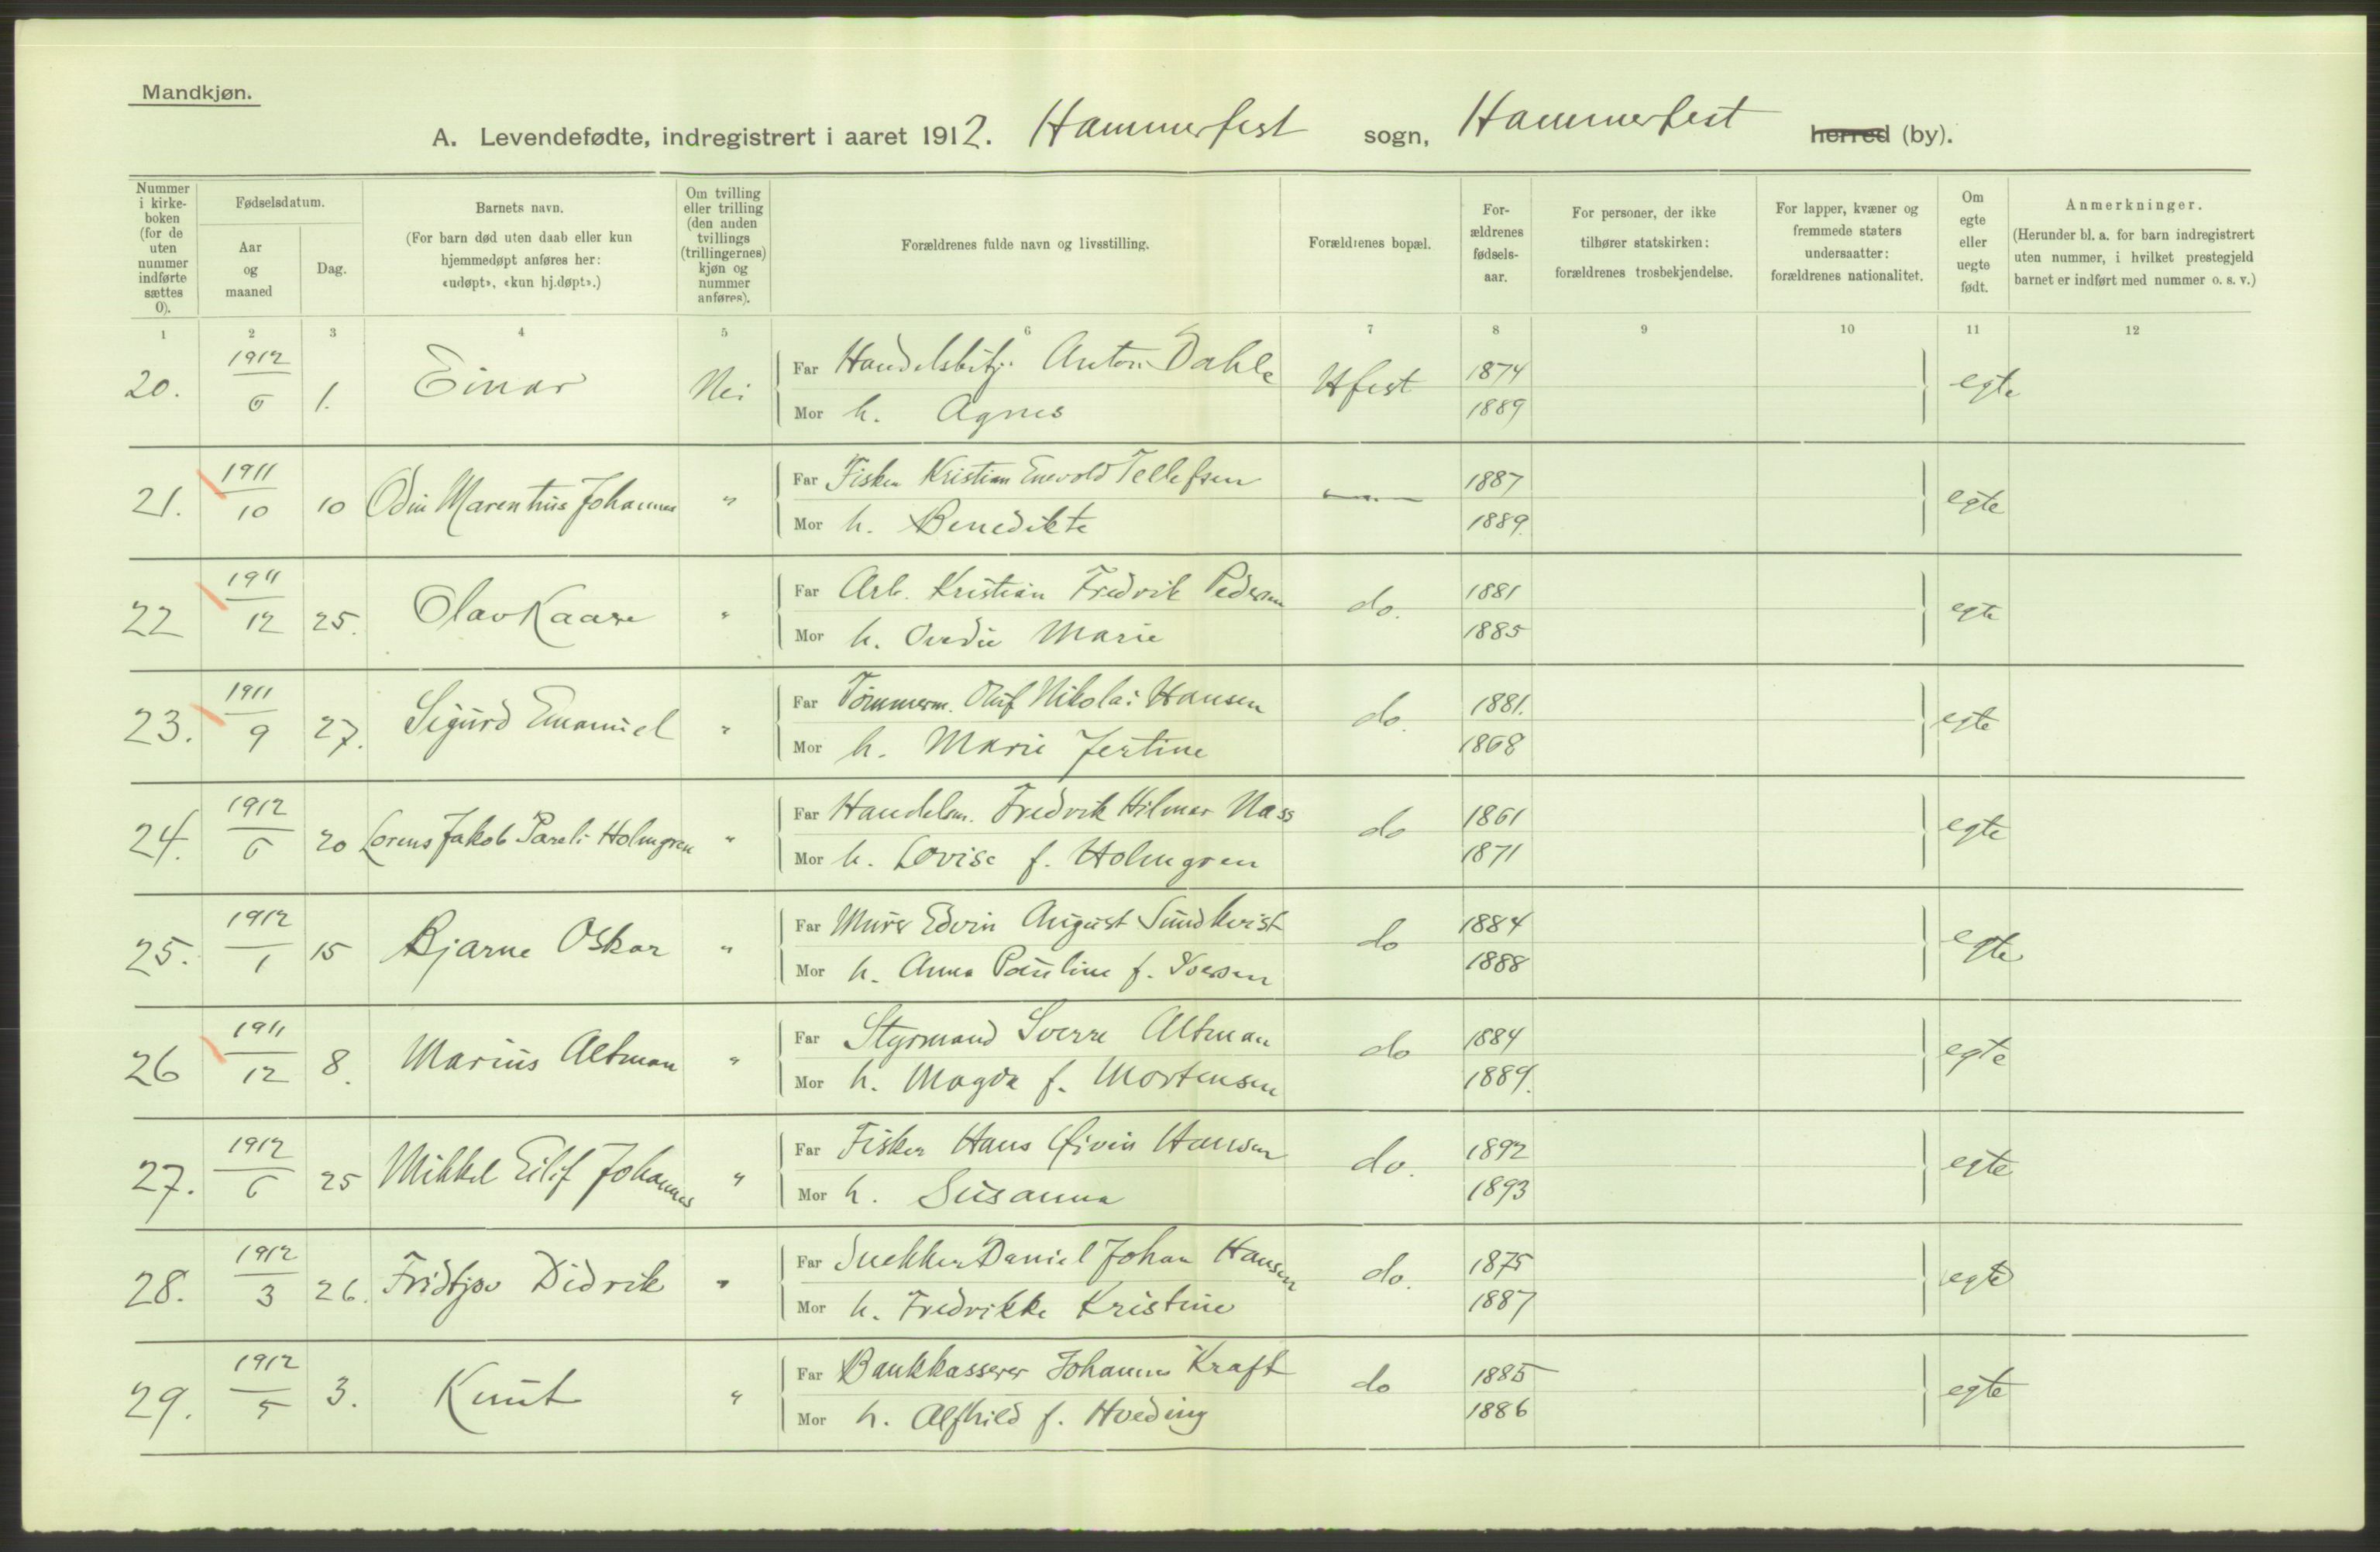 Mandkjøn.
A. Levendefødte, indregistrert i aaret 1912. Hammerfest sogn, Hammerfest herred (by).
Nummer i kirke-boken (for de uten nummer indførte sættes 0).
Fødselsdatum.
Aar og maaned
Dag.
Barnets navn.
(For barn død uten daab eller kun hjemmedøpt anføres her: «udøpt», «kun hj.døpt».)
Om tvilling eller trilling (den anden tvillings (trillingernes) kjøn og nummer anføres).
Forældrenes fulde navn og livsstilling.
Forældrenes bopæl.
For-ældrenes fødsels-aar.
For personer, der ikke tilhører statskirken: forældrenes trosbekjendelse.
For lapper, kvæner og fremmede staters undersaatter: forældrenes nationalitet.
Om egte eller uegte født.
Anmerkninger.
(Herunder bl. a. for barn indregistrert uten nummer, i hvilket prestegjeld barnet er indført med nummer o. s. v.)
1 2 3 4 5 6 7 8 9 10 11 12
20. 1912/6 1. Einar Nei Far Handelsbetj. Anton Dahle Hfest 1874 egte
Mor h. Agnes 1889
21. 1911/10 10 Odin Marenthius Johannes " Far Fisker Kristian Enevold Tellefsen — " — 1887 egte
Mor h. Benedikte 1889.
22 1911/12 25. Olav Kaare " Far Arb. Kristian Fredrik Pedersen do. 1881 egte
Mor h. Marie 1885
23. 1911/9 27. Sigurd Emanuel " Far Tömmerm. Oluf Nikolai Hansen do. 1881. egte
Mor h. Marie Jertine 1868
24. 1912/6 20 Lorens Jakob Pareli Holmgren " Far Handelsm. Fredrik Hilmar Nass do 1861 egte
Mor h. Lovise f. Holmgren 1871
25. 1912/1 15 Bjarne Oskar " Far Murer Edvin August Sundkvist do 1884 egte
Mor h. Anna Pauline f. Iversen 1888
26 1911/12 8. Marius Altman " Far Styrmand Sverre Altman do 1884 egte
Mor h. Magda f. Mortensen 1889.
27. 1912/6 25 Mikkel Eilif Johannes " Far Fisker Hans Øivin Hansen do. 1892 egte
Mor h. Susanna 1893
28. 1912/3 26. Fridtjov Didrik " Far Snekker Daniel Johan Hansen do. 1875 egte
Mor h. Fredrikke Kristine 1887
29. 1912/5 3. Knut " Far Bankkasserer Johannes Kraft do 1885 egte
Mor h. Alfhild f. Hveding 1886